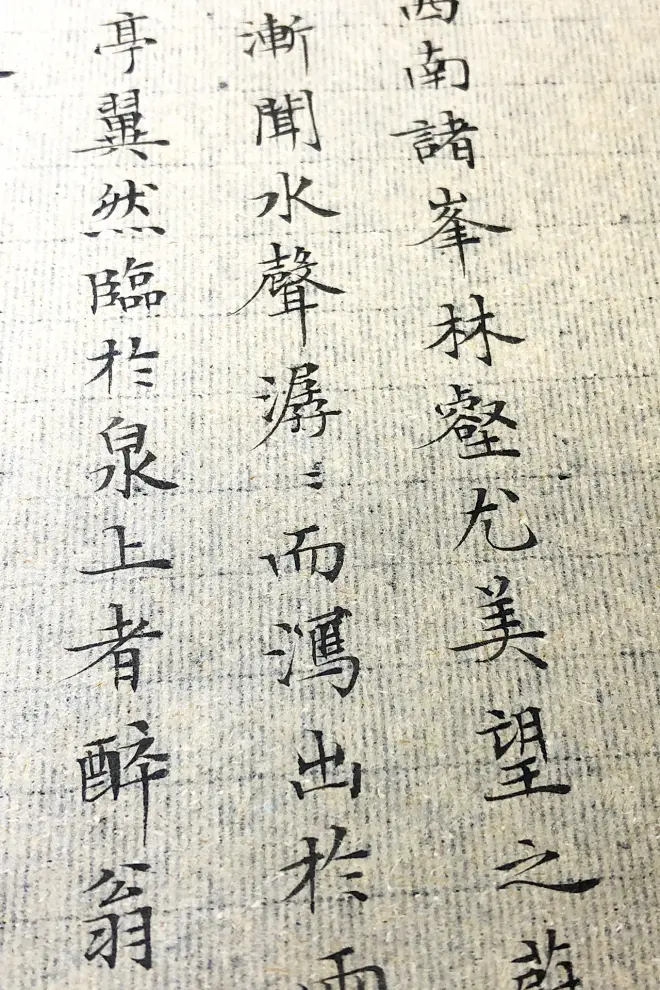 西南諸峯林壑尤美望之蔚
漸聞水聲潺〻而瀉出於兩
亭翼然臨於泉上者醉翁